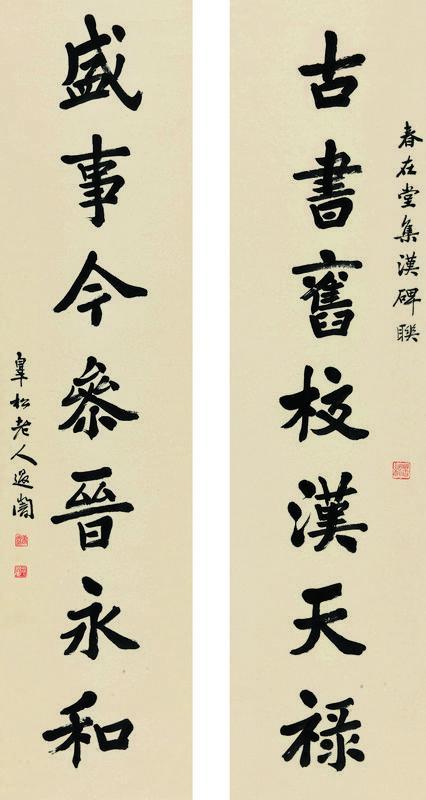 春在堂集漢碑聯
古書舊校漢天禄
盛事今參晉永和
松老人